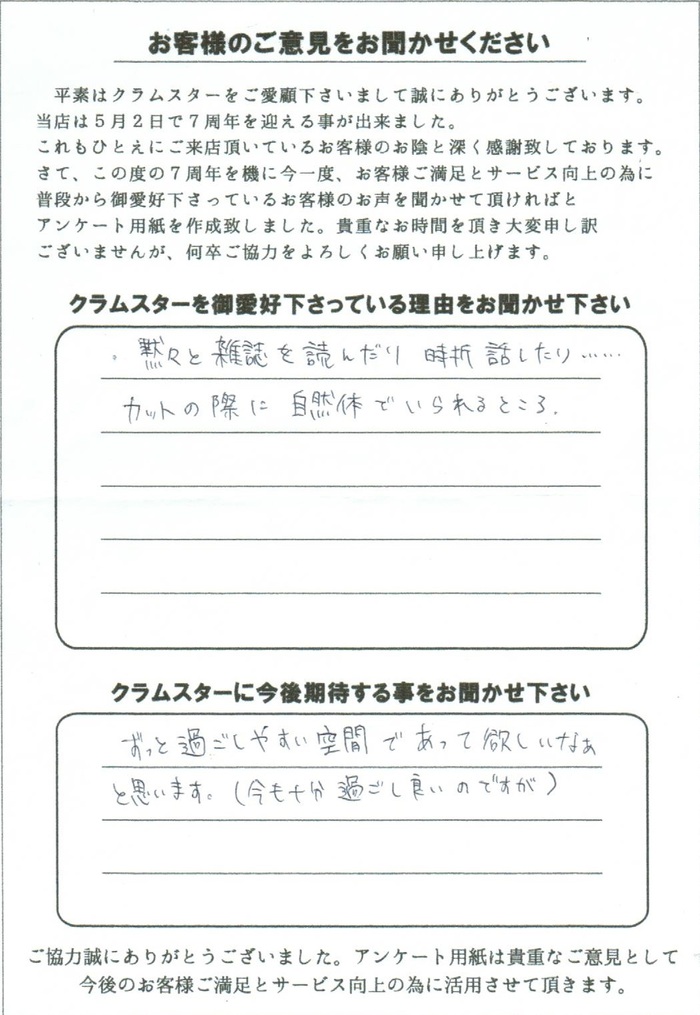 お客様のご意見をお聞かせください
平素はクラムスターをご愛顧下さいまして誠にありがとうございます。
当店は５月２日で７周年を迎える事が出来ました。
これもひとえにご来店頂いているお客様のお陰と深く感謝致しております。
さて、この度の７周年を機に今一度、お客様ご満足とサービス向上の為に
普段から御愛好下さっているお客様のお声を聞かせて頂ければと
アンケート用紙を作成致しました。貴重なお時間を頂き大変申し訳
ございませんが、何卒ご協力をよろしくお願い申し上げます。
クラムスターを御愛好下さっている理由をお聞かせ下さい
・黙々と雑誌を読んだり 時折 話したり……
カットの際に 自然体でいられるところ.
クラムスターに今後期待する事をお聞かせ下さい
ずっと過ごしやすい空間であって欲しいなぁ
と思います。(今も十分過ごし良いのですが)
ご協力誠にありがとうございました。アンケート用紙は貴重なご意見として
今後のお客様ご満足とサービス向上の為に活用させて頂きます。